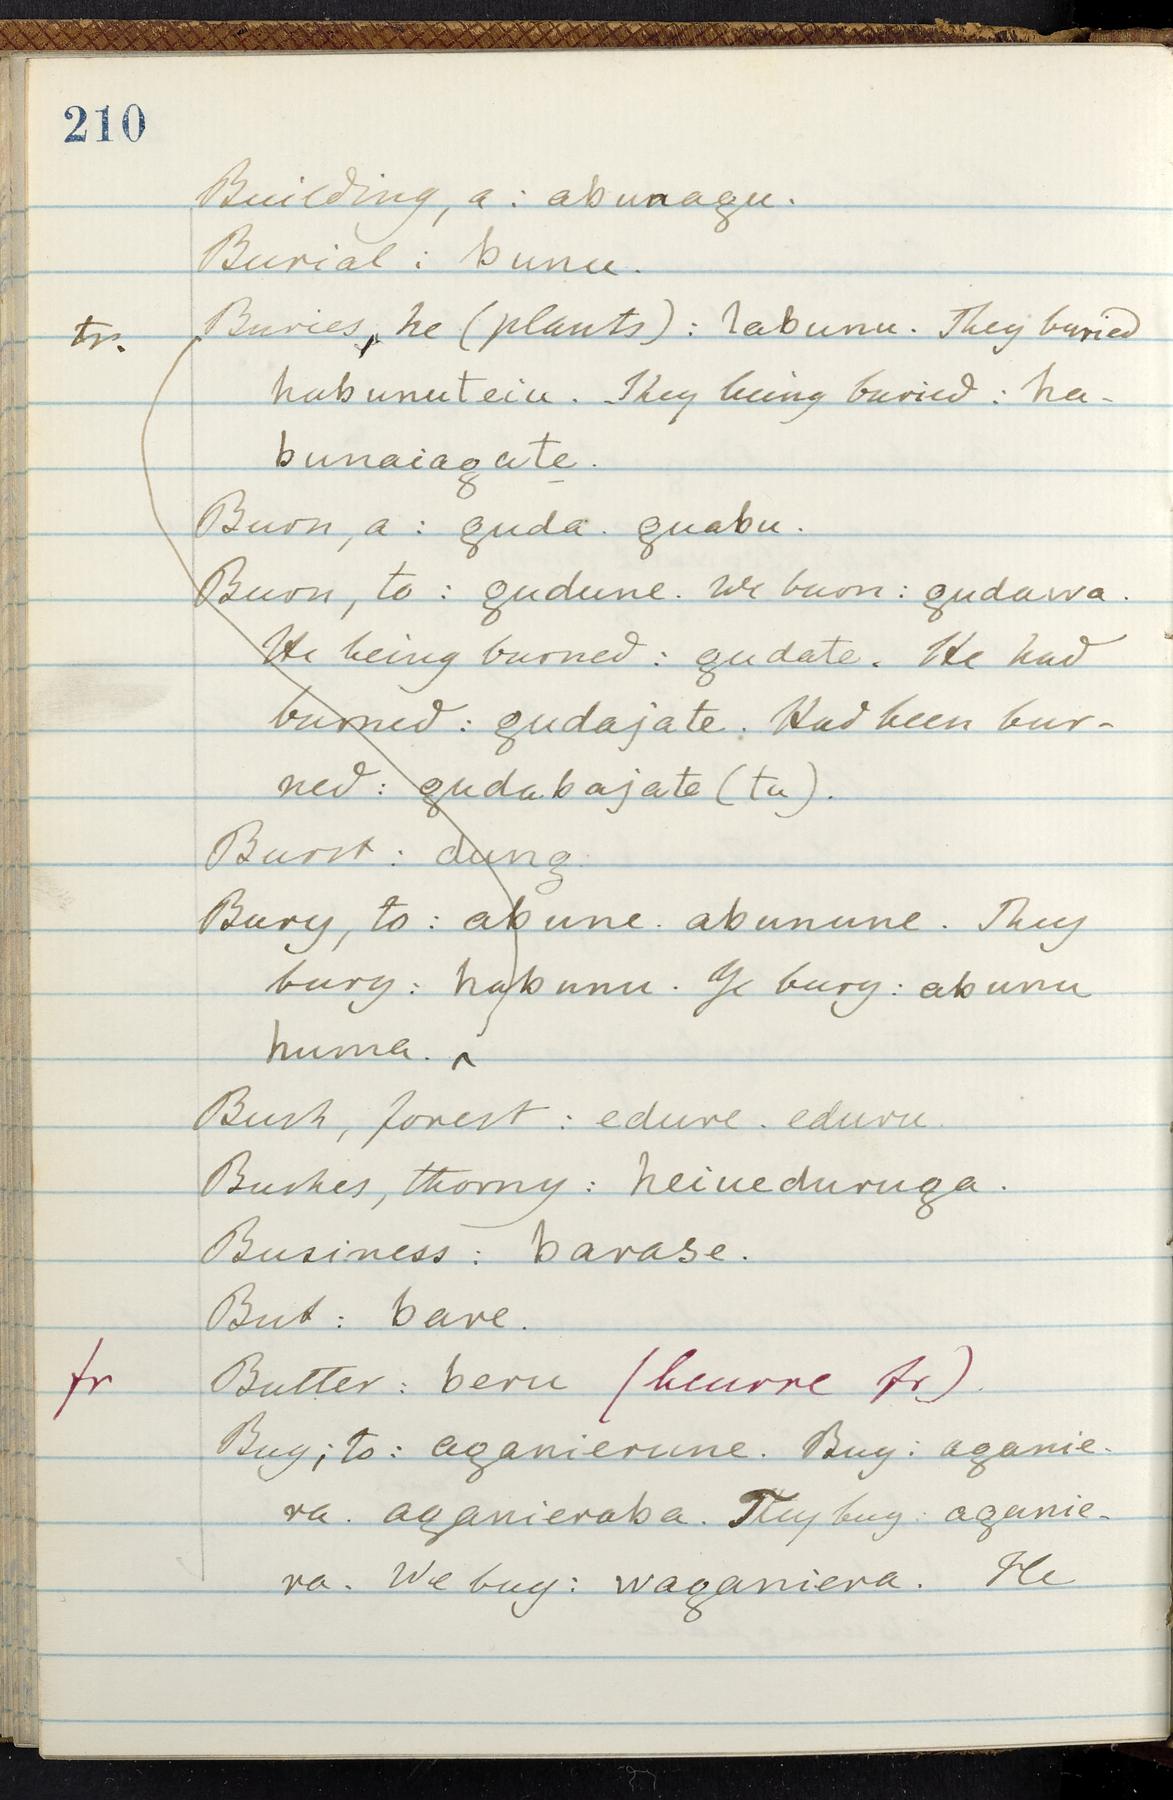 210
Building, a : abunagu.
Burial : bunu.
tr. Buries, he (plants) : labunu. They buried
habunuteiu. They being buried : ha-
bunaiagate.
Burn, a : guda. guabu.
Burn, to : gudune. We burn : gudawa.
He being burned : gudate. He had
burned : gudajate. Had been bur-
ned : gudabajate (tu).
Burst : dung.
Bury, to : abune. abunune. They
bury : habunu. Ye bury : abunu
huma. ^
Bush, forest : edure. eduru.
Bushes, thorny : heiueduruga.
Business : barase.
But : bare.
fr Butter : beru (beurre fr).
Buy, to : aganierune. Buy : aganie-
ra. aganieraba. They buy : aganie-
ra. We buy : waganiera. He